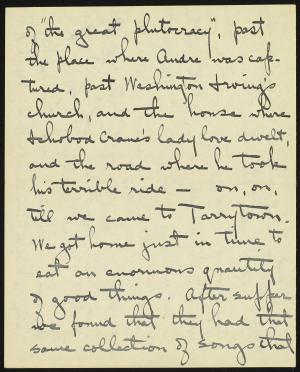 of "the great plutocracy", past
the place where Andre was cap-
tured, past Washington Irving's
church, and the house where
Ichobod Crane's lady love dwelt,
and the road where he took
his terrible ride — on, on,
till we came to Tarrytown.
We got home just in time to
eat an enormous quantity
of good things. After supper
we found that they had that
same collection of songs that